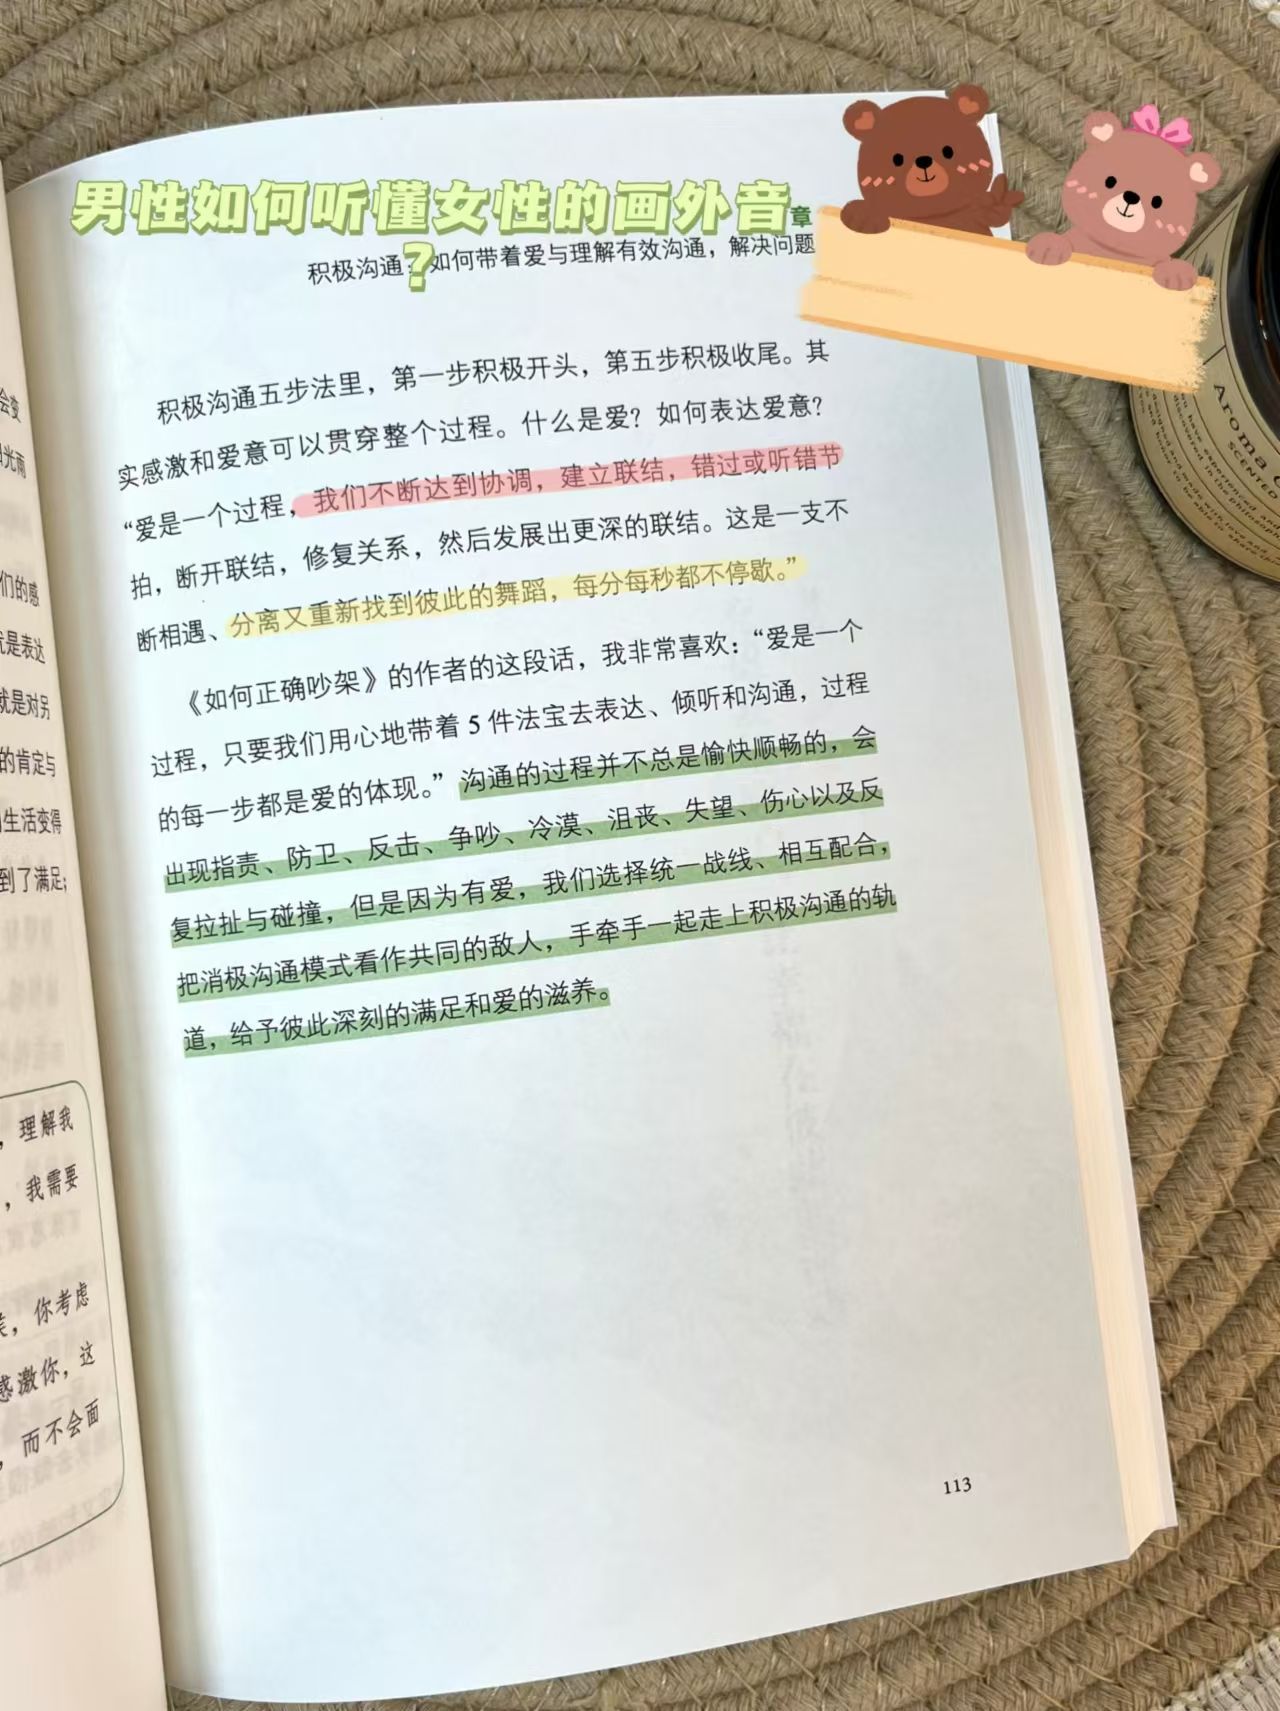 男性如何听懂女性的画外音
？
章
积极沟通：如何带着爱与理解有效沟通，解决问题
积极沟通五步法里，第一步积极开头，第五步积极收尾。其
实感激和爱意可以贯穿整个过程。什么是爱？如何表达爱意？
“爱是一个过程，我们不断达到协调，建立联结，错过或听错节
拍，断开联结，修复关系，然后发展出更深的联结。这是一支不
断相遇、分离又重新找到彼此的舞蹈，每分每秒都不停歇。”
《如何正确吵架》的作者的这段话，我非常喜欢：“爱是一个
过程，只要我们用心地带着 5 件法宝去表达、倾听和沟通，过程
的每一步都是爱的体现。”沟通的过程并不总是愉快顺畅的，会
出现指责、防卫、反击、争吵、冷漠、沮丧、失望、伤心以及反
复拉扯与碰撞，但是因为有爱，我们选择统一战线、相互配合，
把消极沟通模式看作共同的敌人，手牵手一起走上积极沟通的轨
道，给予彼此深刻的满足和爱的滋养。
113
会变
光雨
们的感
就是表达
就是对另
的肯定与
生活变得
到了满足；
，理解我
，我需要
，你考虑
感激你，这
，而不会面
Aroma
SCENTED